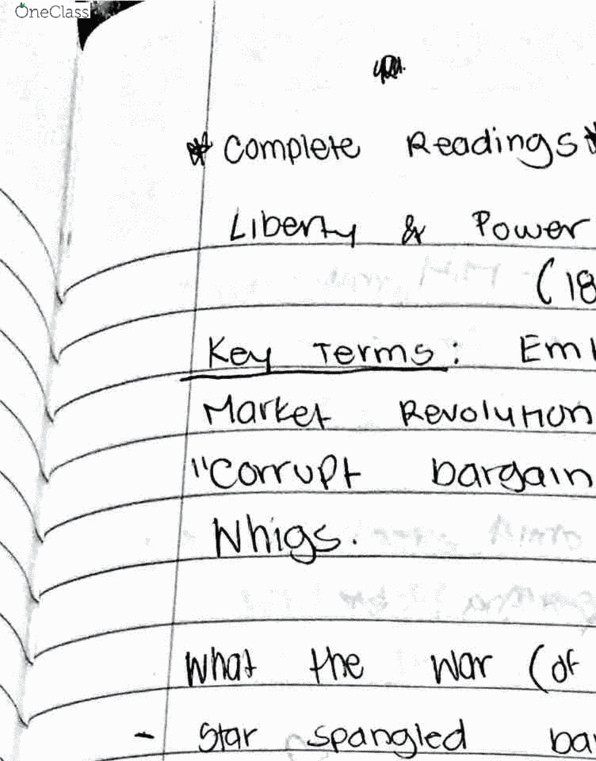 OneClass
* Complete Readings *
Liberty & Power
(18
Key Terms: Em
Market Revolution
"Corrupt bargain
Whigs.
What the War (of
- Star spangled ba